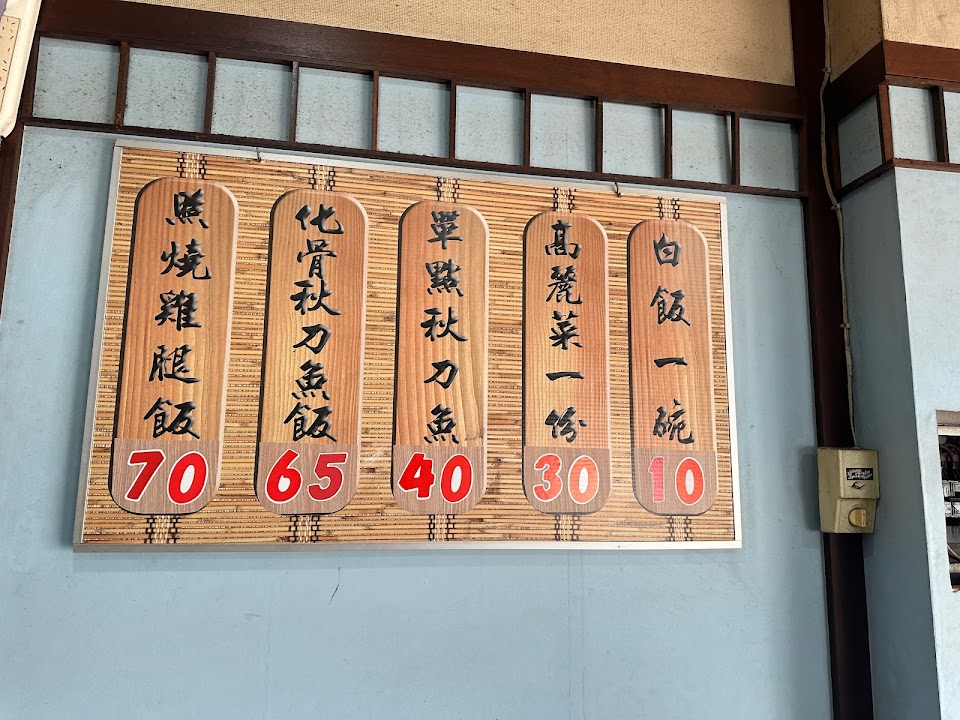 照燒雞腿飯
70
化骨秋刀魚飯
65
單點秋刀魚
40
高麗菜一份
30
白飯一碗
10